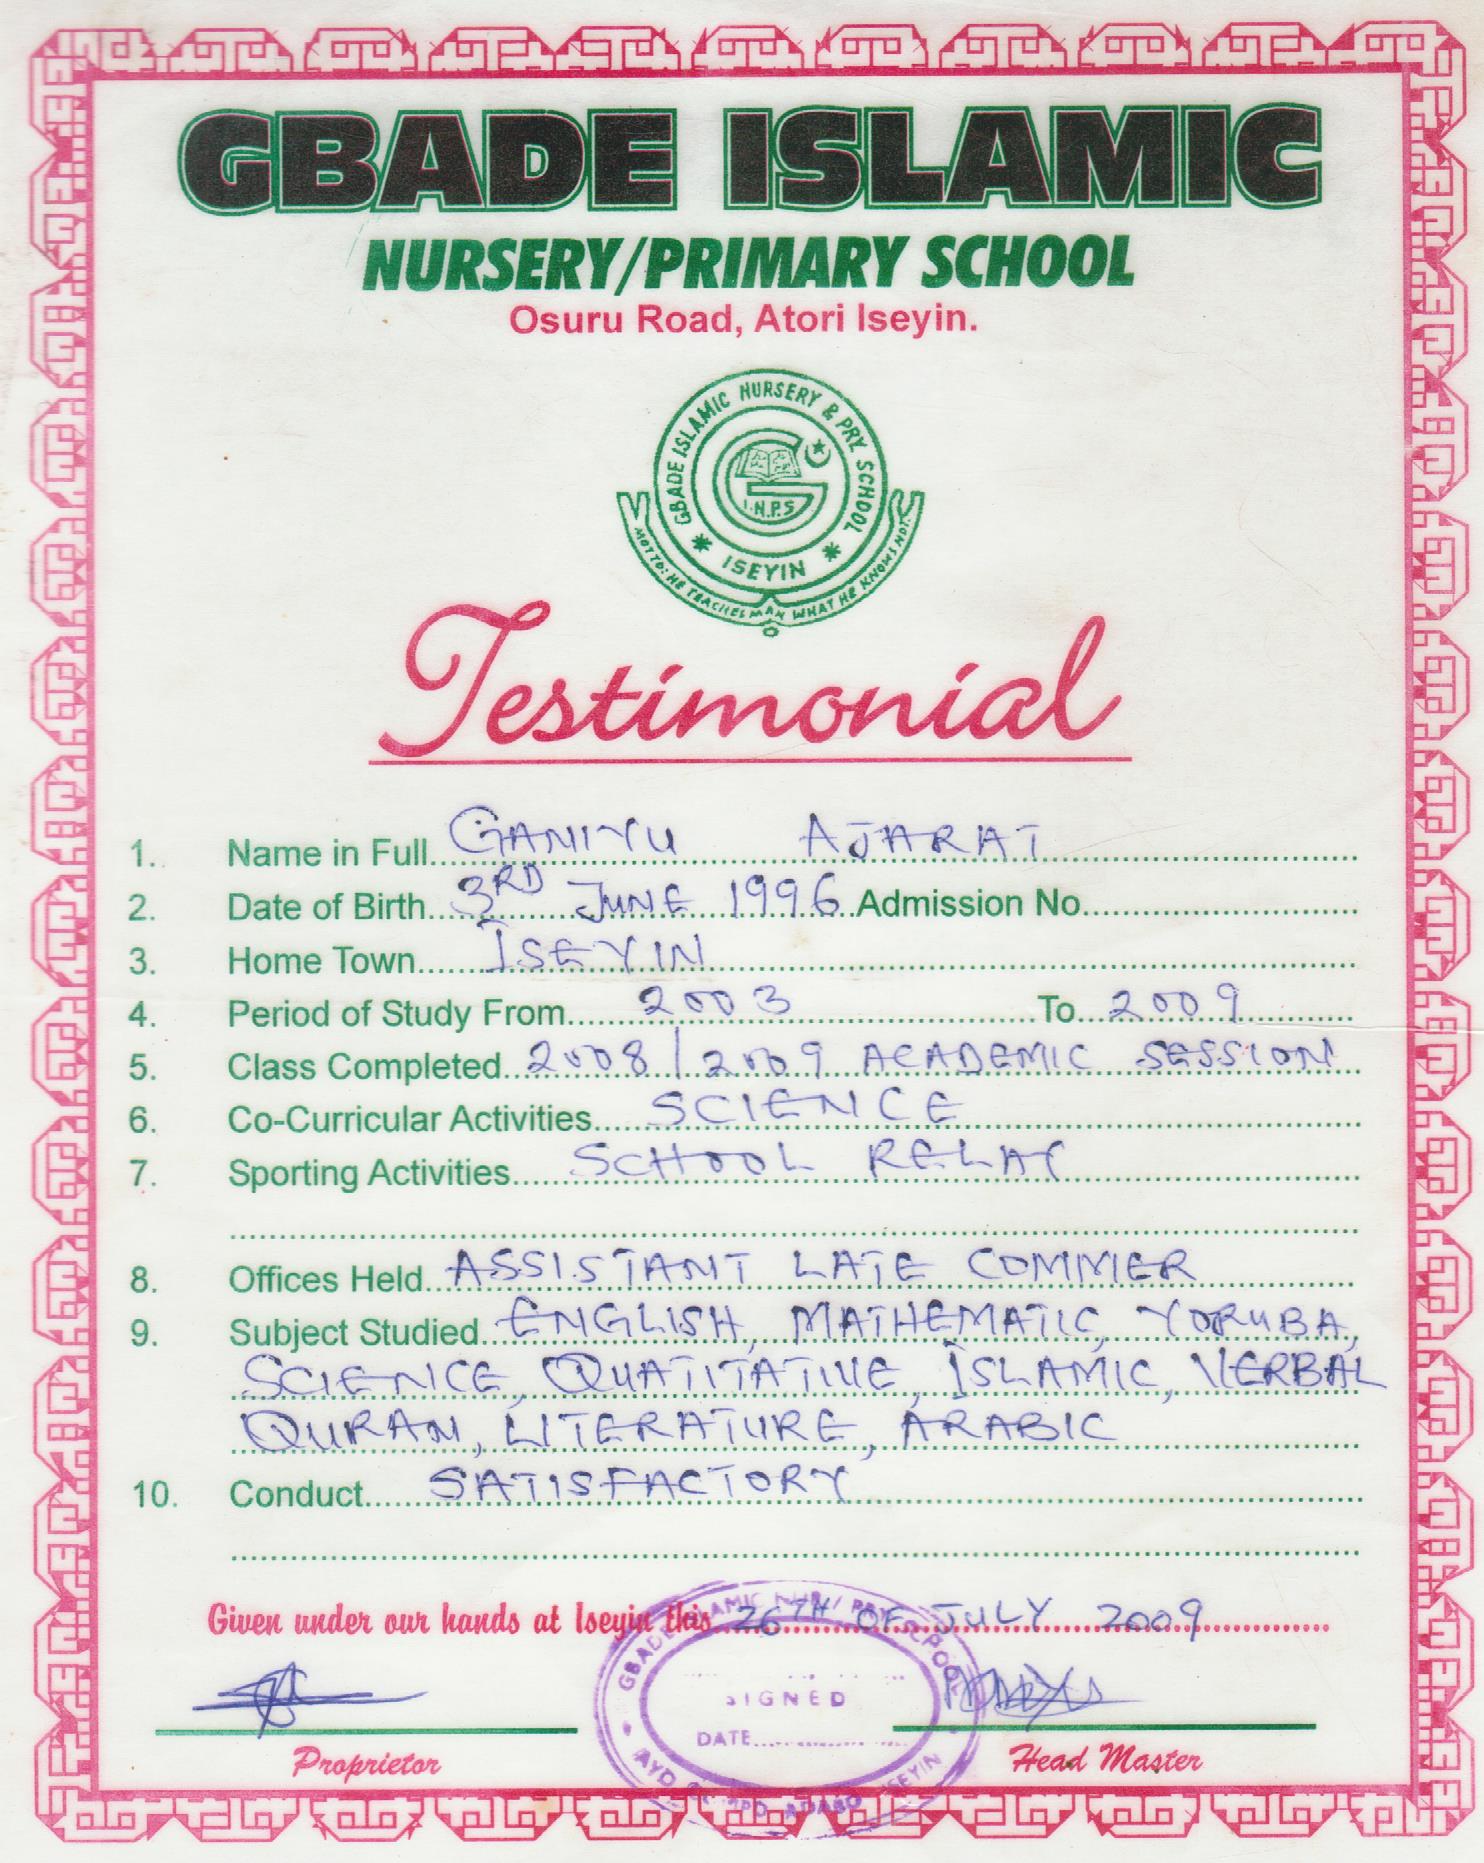 GBADE ISLAMIC
NURSERY/PRIMARY SCHOOL
Osuru Road, Atori Iseyin.
GBADE ISLAMIC NURSERY & PRY SCHOOL
I.N.P.S
ISEYIN
MOTTO: HE TEACHES MAN WHAT HE KNOWS NOT.
Testimonial
1. Name in Full GANIYU AJARAT
2. Date of Birth 3RD JUNE 1996 Admission No
3. Home Town ISEYIN
4. Period of Study From 2003 To 2009
5. Class Completed 2008/2009 ACADEMIC SESSION
6. Co-Curricular Activities SCIENCE
7. Sporting Activities SCHOOL RELAY
8. Offices Held ASSISTANT LATE COMMER
9. Subject Studied ENGLISH, MATHEMATIC, YORUBA,
SCIENCE, QUATITATIVE, ISLAMIC, VERBAL
QURAN, LITERATURE, ARABIC
10. Conduct SATISFACTORY
Given under our hands at Iseyin this 26TH OF JULY 2009
GBADE ISLAMIC NUR/PRY SCHOOL
SIGNED
DATE
ADABO ISEYIN
Proprietor Head Master